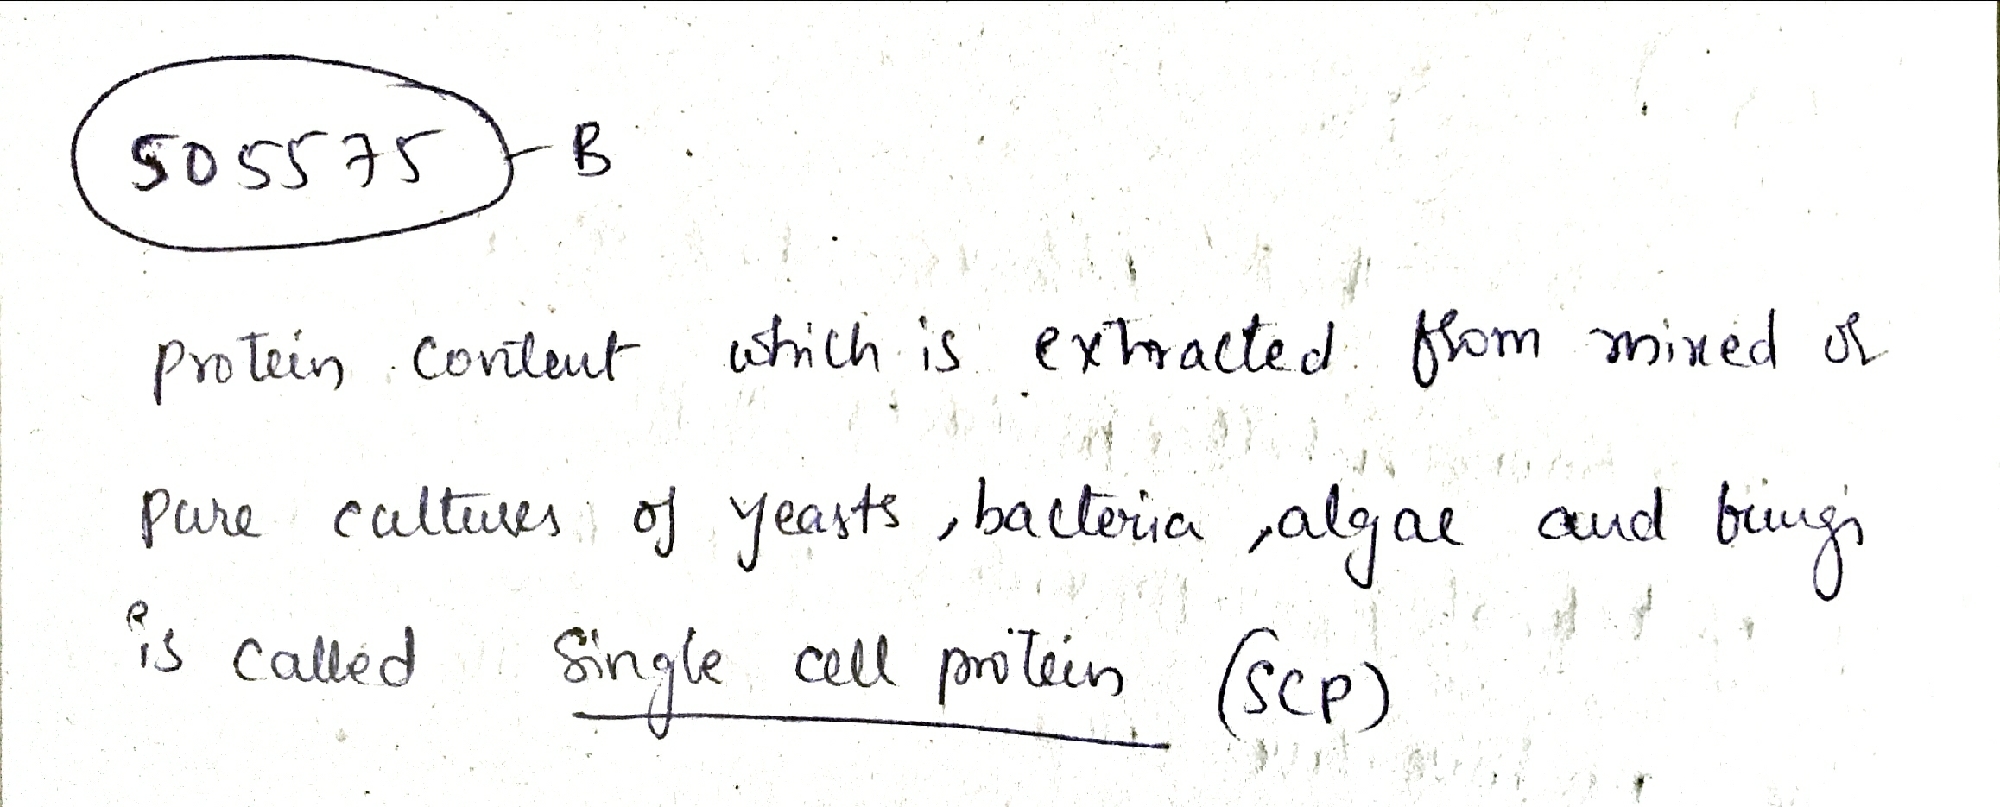 505575 - B
protein content which is extracted from mixed or
pure cultures of yeasts, bacteria, algae and fungi
is called Single cell protein (SCP)